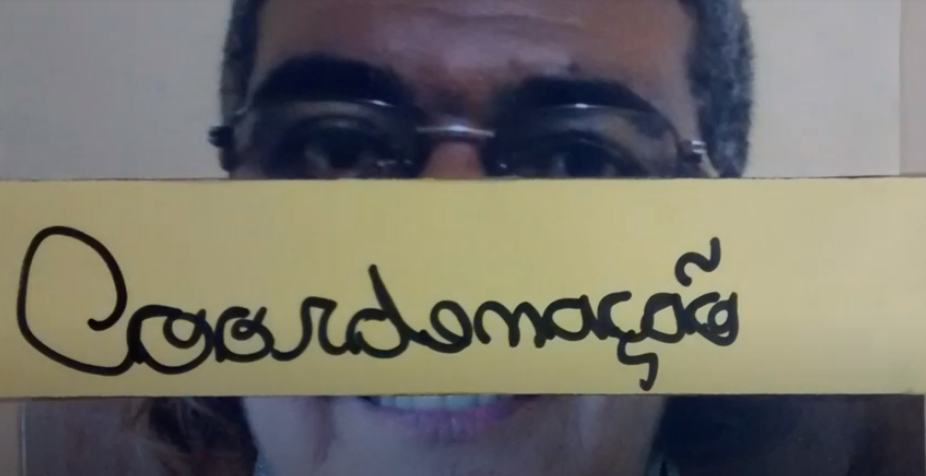 Coordenação